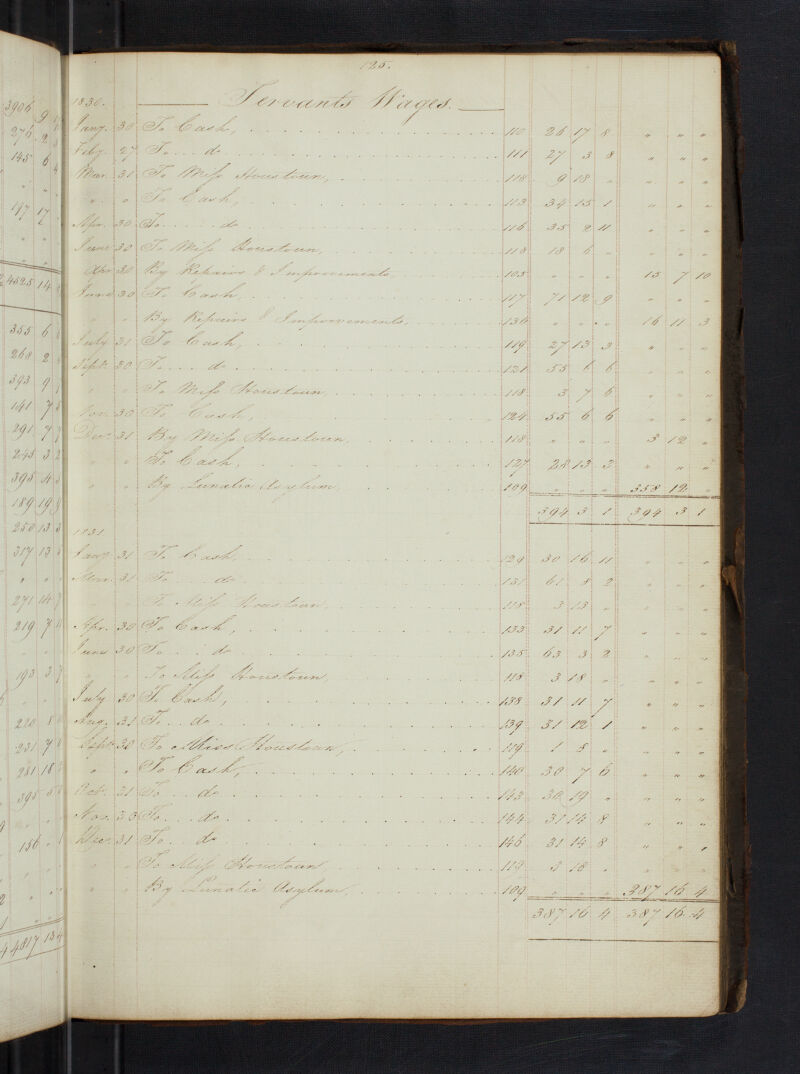 3906 9
276 2
145 6 4
" "
147 17
" "
4525 14
355 6
268 2
393 9
141 7
291 7
245 3
395 4
189 19
250 13
317 13
" "
271 14
219 7
193 3
220 8
231 7
231 18
395 5
156
4817 13 4
125.
Servants Wages.
1830.
Jany. 30 To Cash, 110 26 17 8 " " "
Feby. 27 To do 111 27 3 8 " " "
Mar. 31 To Miss Houstoun, 118 9 18 " " " "
" " To Cash, 113 34 15 1 " " "
Apr. 30 To do 116 35 2 11 " " "
June 30 To Miss Houstoun, 118 18 6 " " " "
30 By Repairs & Improvements 105 " " " 15 7 10
June 30 To Cash, 117 71 12 9 " " "
" " By Repairs & Improvements, 136 " " " 16 11 3
July 31 To Cash, 119 27 13 3 " " "
Sept. 30 To do 121 55 6 6 " " "
" " To Miss Houstoun, 118 3 7 6 " " "
Nov. 30 To Cash, 124 55 6 6 " " "
Dec. 31 By Miss Houstoun, 118 " " " 3 12 "
" " To Cash, 127 28 13 3 " " "
" " By Lunatic Asylum 109 " " " 358 12 "
394 3 1 394 3 1
1831
Jany. 31 To Cash, 129 30 16 11 " " "
Mar. 31 To do 131 61 8 2 " " "
" " To Miss Houstoun, 118 3 13 " " " "
Apr. 30 To Cash, 133 31 11 7 " " "
June 30 To do 135 63 3 2 " " "
" " To Miss Houstoun, 118 3 18 " " " "
July 30 To Cash, 138 31 11 7 " " "
Aug. 31 To do 139 31 12 1 " " "
Sept. 30 To Miss Houstoun, 119 1 5 " " " "
" " To Cash, 140 30 7 6 " " "
Oct. 31 To do 143 30 19 " " " "
Nov. 30 To do 144 31 14 8 " " "
Dec. 31 To do 146 31 14 8 " " "
" " To Miss Houstoun 119 3 18 " " " "
" " By Lunatic Asylum, 109 " " " 387 16 4
387 16 4 387 16 4